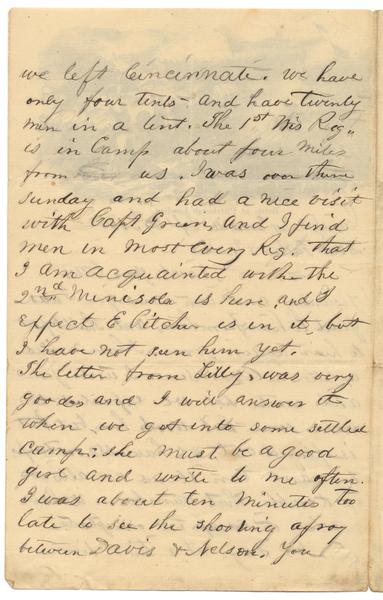 we left Cincinnati. we have
only four tents and have twenty
men in a tent. The 1st Wis Reg,,
is in Camp about four miles
from us. I was over there
sunday and had a nice visit
with Capt Green, and I find
men in most every Reg. that
I am acquainted with the
2nd Minisota is here and I
expect E Pitcher is in it, but
I have not seen him yet.
The letter from Lilly, was very
good, and I will answer it
when we get into some settled
camp; she must be a good
girl and write to me often.
I was about ten minutes too
late to see the shooting afray
between Davis & Nelson. You